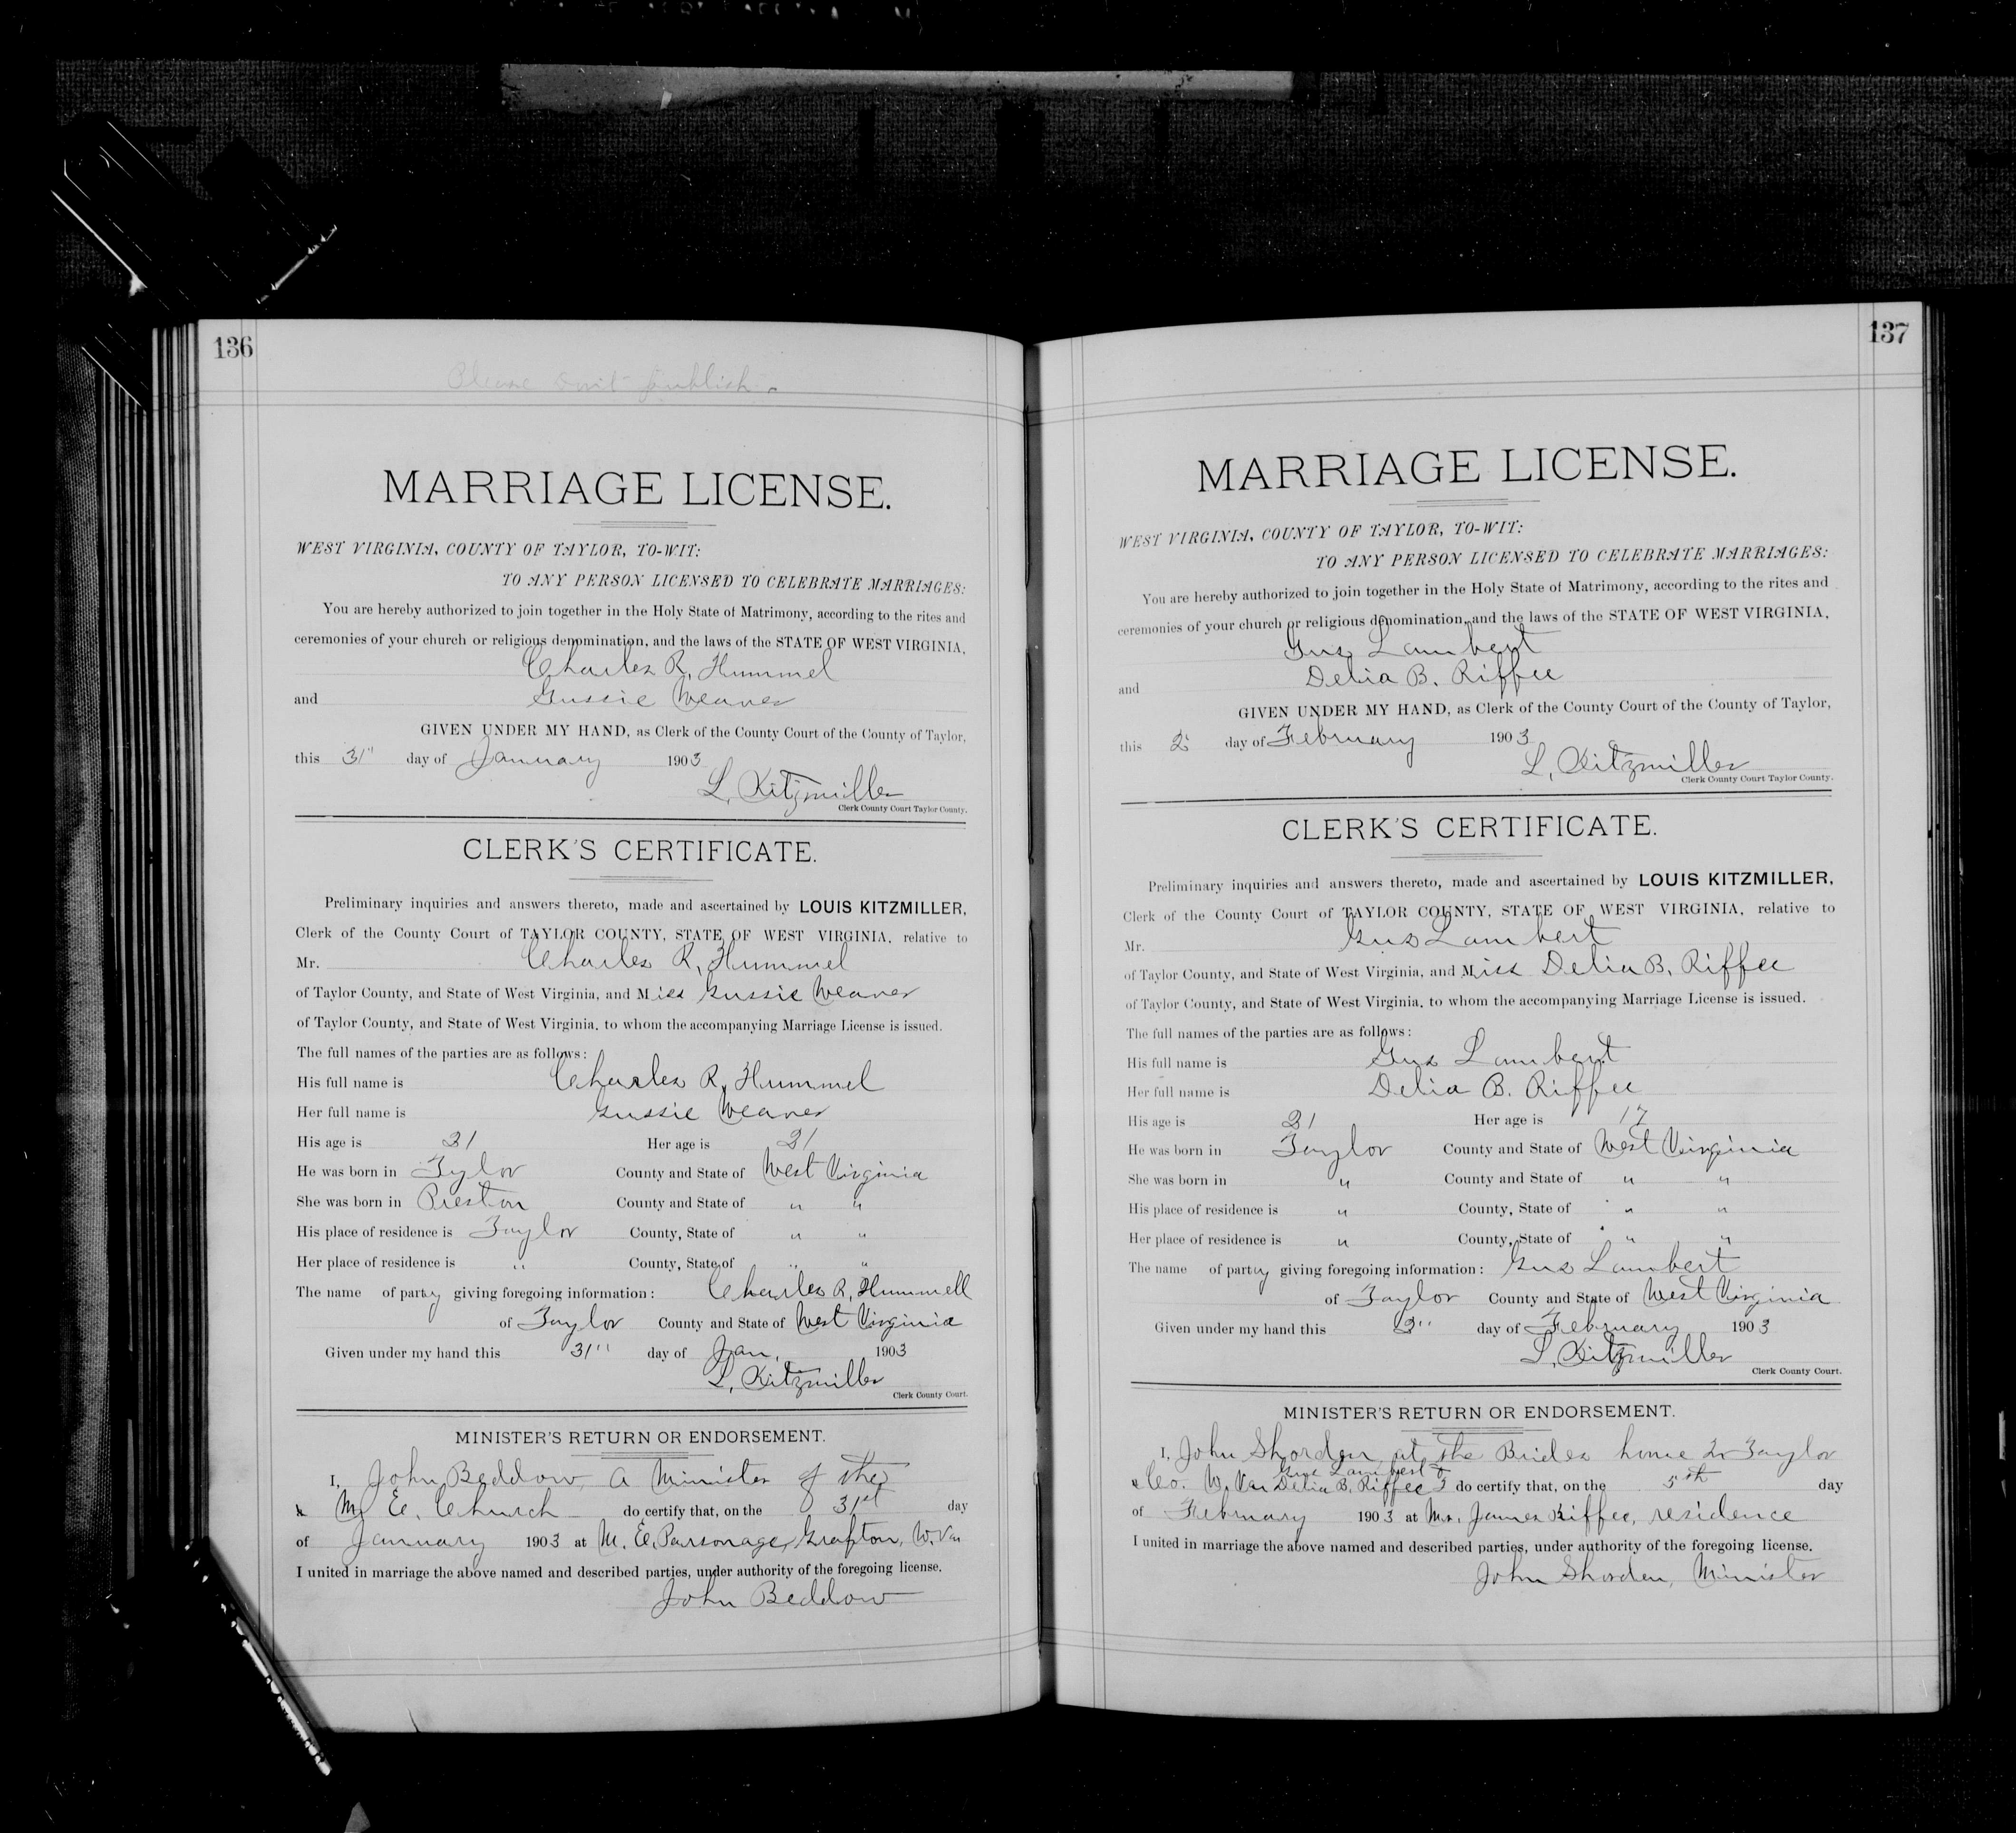 136
Please don't publish.
MARRIAGE LICENSE.
WEST VIRGINIA, COUNTY OF TAYLOR, TO-WIT:
TO ANY PERSON LICENSED TO CELEBRATE MARRIAGES:
You are hereby authorized to join together in the Holy State of Matrimony, according to the rites and
ceremonies of your church or religious denomination, and the laws of the STATE OF WEST VIRGINIA,
Charles R. Hummel
and Gussie Weaver
GIVEN UNDER MY HAND, as Clerk of the County Court of the County of Taylor,
this 31" day of January 1903
L. Kitzmiller
Clerk County Court Taylor County.
CLERK'S CERTIFICATE.
Preliminary inquiries and answers thereto, made and ascertained by LOUIS KITZMILLER,
Clerk of the County Court of TAYLOR COUNTY, STATE OF WEST VIRGINIA, relative to
Mr. Charles R. Hummel
of Taylor County, and State of West Virginia, and Miss Gussie Weaver
of Taylor County, and State of West Virginia, to whom the accompanying Marriage License is issued.
The full names of the parties are as follows:
His full name is Charles R. Hummel
Her full name is Gussie Weaver
His age is 21 Her age is 21
He was born in Tylor County and State of West Virginia
She was born in Preston County and State of " "
His place of residence is Taylor County, State of " "
Her place of residence is " County, State of " "
The name of party giving foregoing information: Charles R. Hummell
of Taylor County and State of West Virginia
Given under my hand this 31" day of Jan. 1903
L. Kitzmiller
Clerk County Court.
MINISTER'S RETURN OR ENDORSEMENT.
I, John Beddow, a Minister of the
M. E. Church do certify that, on the 31st day
of January 1903 at M. E. Parsonage, Grafton, W. Va
I united in marriage the above named and described parties, under authority of the foregoing license.
John Beddow
137
MARRIAGE LICENSE.
WEST VIRGINIA, COUNTY OF TAYLOR, TO-WIT:
TO ANY PERSON LICENSED TO CELEBRATE MARRIAGES:
You are hereby authorized to join together in the Holy State of Matrimony, according to the rites and
ceremonies of your church or religious denomination, and the laws of the STATE OF WEST VIRGINIA,
Gus Lambert
and Delia B. Riffee
GIVEN UNDER MY HAND, as Clerk of the County Court of the County of Taylor,
this 2" day of February 1903
L. Kitzmiller
Clerk County Court Taylor County.
CLERK'S CERTIFICATE.
Preliminary inquiries and answers thereto, made and ascertained by LOUIS KITZMILLER,
Clerk of the County Court of TAYLOR COUNTY, STATE OF WEST VIRGINIA, relative to
Mr. Gus Lambert
of Taylor County, and State of West Virginia, and Miss Delia B. Riffee
of Taylor County, and State of West Virginia, to whom the accompanying Marriage License is issued.
The full names of the parties are as follows:
His full name is Gus Lambert
Her full name is Delia B. Riffee
His age is 21 Her age is 17
He was born in Taylor County and State of West Virginia
She was born in " County and State of " "
His place of residence is " County, State of " "
Her place of residence is " County, State of " "
The name of party giving foregoing information: Gus Lambert
of Taylor County and State of West Virginia
Given under my hand this day of February 1903
L. Kitzmiller
Clerk County Court.
MINISTER'S RETURN OR ENDORSEMENT.
I, John Shorden, at the Brides home in Taylor
Gus Lambert &
Co. W. Va. Delia B. Riffee do certify that, on the 5th day
of February 1903 at Mr. James Riffee, residence
I united in marriage the above named and described parties, under authority of the foregoing license.
John Shorden, Minister